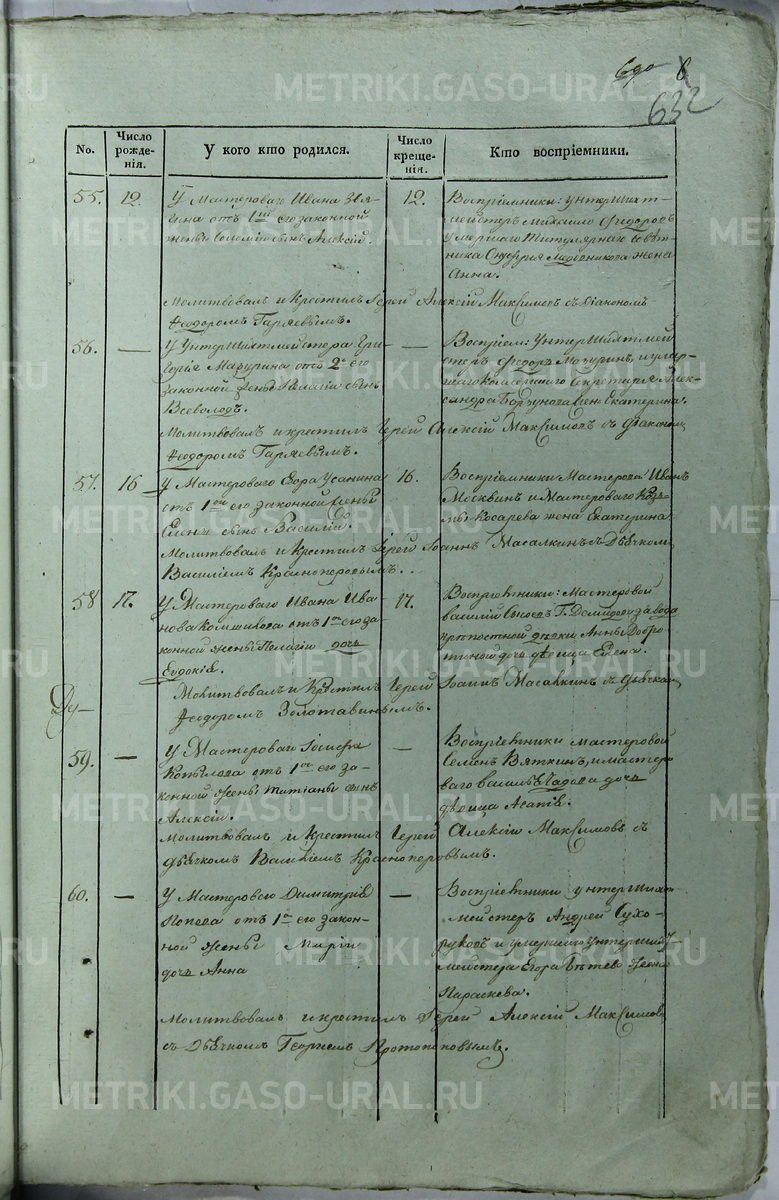 632
No.
Число рожде-нія.
У кого кто родился.
Число креще-нія.
Кто воспріемники.
55.
12
У Мастероваго Ивана Звя-
гина отъ 1й его законной
жены сынъ Алексій.
12.
Воспріемники: унтершихт-
мейстеръ Михайло Федоровъ
умершаго Титулярнаго Совѣт-
ника жена
Анна.
Молитвовалъ и Крестилъ Іерей Алексій Максимовъ съ Діакономъ
Ѳеодоромъ Гаряевымъ.
56.
—
У Унтершихтмейстера Гри-
горія Мазурина отъ 2й его
законной жены Пелагіи сынъ
Всеволодъ.
—
Воспріем: Унтершихтмей
стеръ Федоръ Мазуринъ, и умер-
шаго Коллежскаго Секретаря Алек-
сандра жена Екатерина.
Молитвовалъ и крестилъ Іерей Алексій Максимовъ съ діакономъ
Ѳеодоромъ Гаряевымъ.
57.
16
У Мастероваго Егора Усанина
отъ 1ой его законной жены
Елены сынъ Василій.
16.
Воспріемники Мастеровой Иванъ
Москвинъ и Мастероваго Козь-
мы Косарева жена Екатерина
Молитвовалъ и Крестилъ Іерей Іоаннъ Масалкинъ съ Дьячкомъ
Василіемъ Красноперовымъ.
58
17.
У Мастероваго Ивана Ива-
нова отъ 1ой его за-
конной жены Пелагіи дочь
Евдокія.
17.
Воспріемники: Мастеровой
Василій Г. Демидову завода
крѣпостной дѣвки Анны Добро-
дочь дѣвица Елена.
Молитвовалъ и Крестилъ Іерей Іоаннъ Масалкинъ съ дьячкомъ
Ѳеодоромъ Золотавинымъ.
59.
—
У Мастероваго Іосифа
Копылова отъ 1ой его за-
конной жены Татіаны сынъ
Алексій.
—
Воспріемники мастеровой
Семенъ Вяткинъ, и мастеро-
ваго дочь
дѣвица Агапія.
Молитвовалъ и Крестилъ Іерей Алексій Максимовъ съ
дьячкомъ Василіемъ Красноперовымъ.
60.
—
У Мастероваго Димитрія
Попова отъ 1й его закон-
ной жены Маріи
дочь Анна
—
Воспріемники унтершихт-
мейстеръ Андрей Сухо-
руковъ и умершаго унтершихт-
мейстера Егора жена
Параскева.
Молитвовалъ и крестилъ Іерей Алексій Максимовъ
съ Дьячкомъ Георгіемъ Протопоповымъ.
METRIKI.GASO-URAL.RU